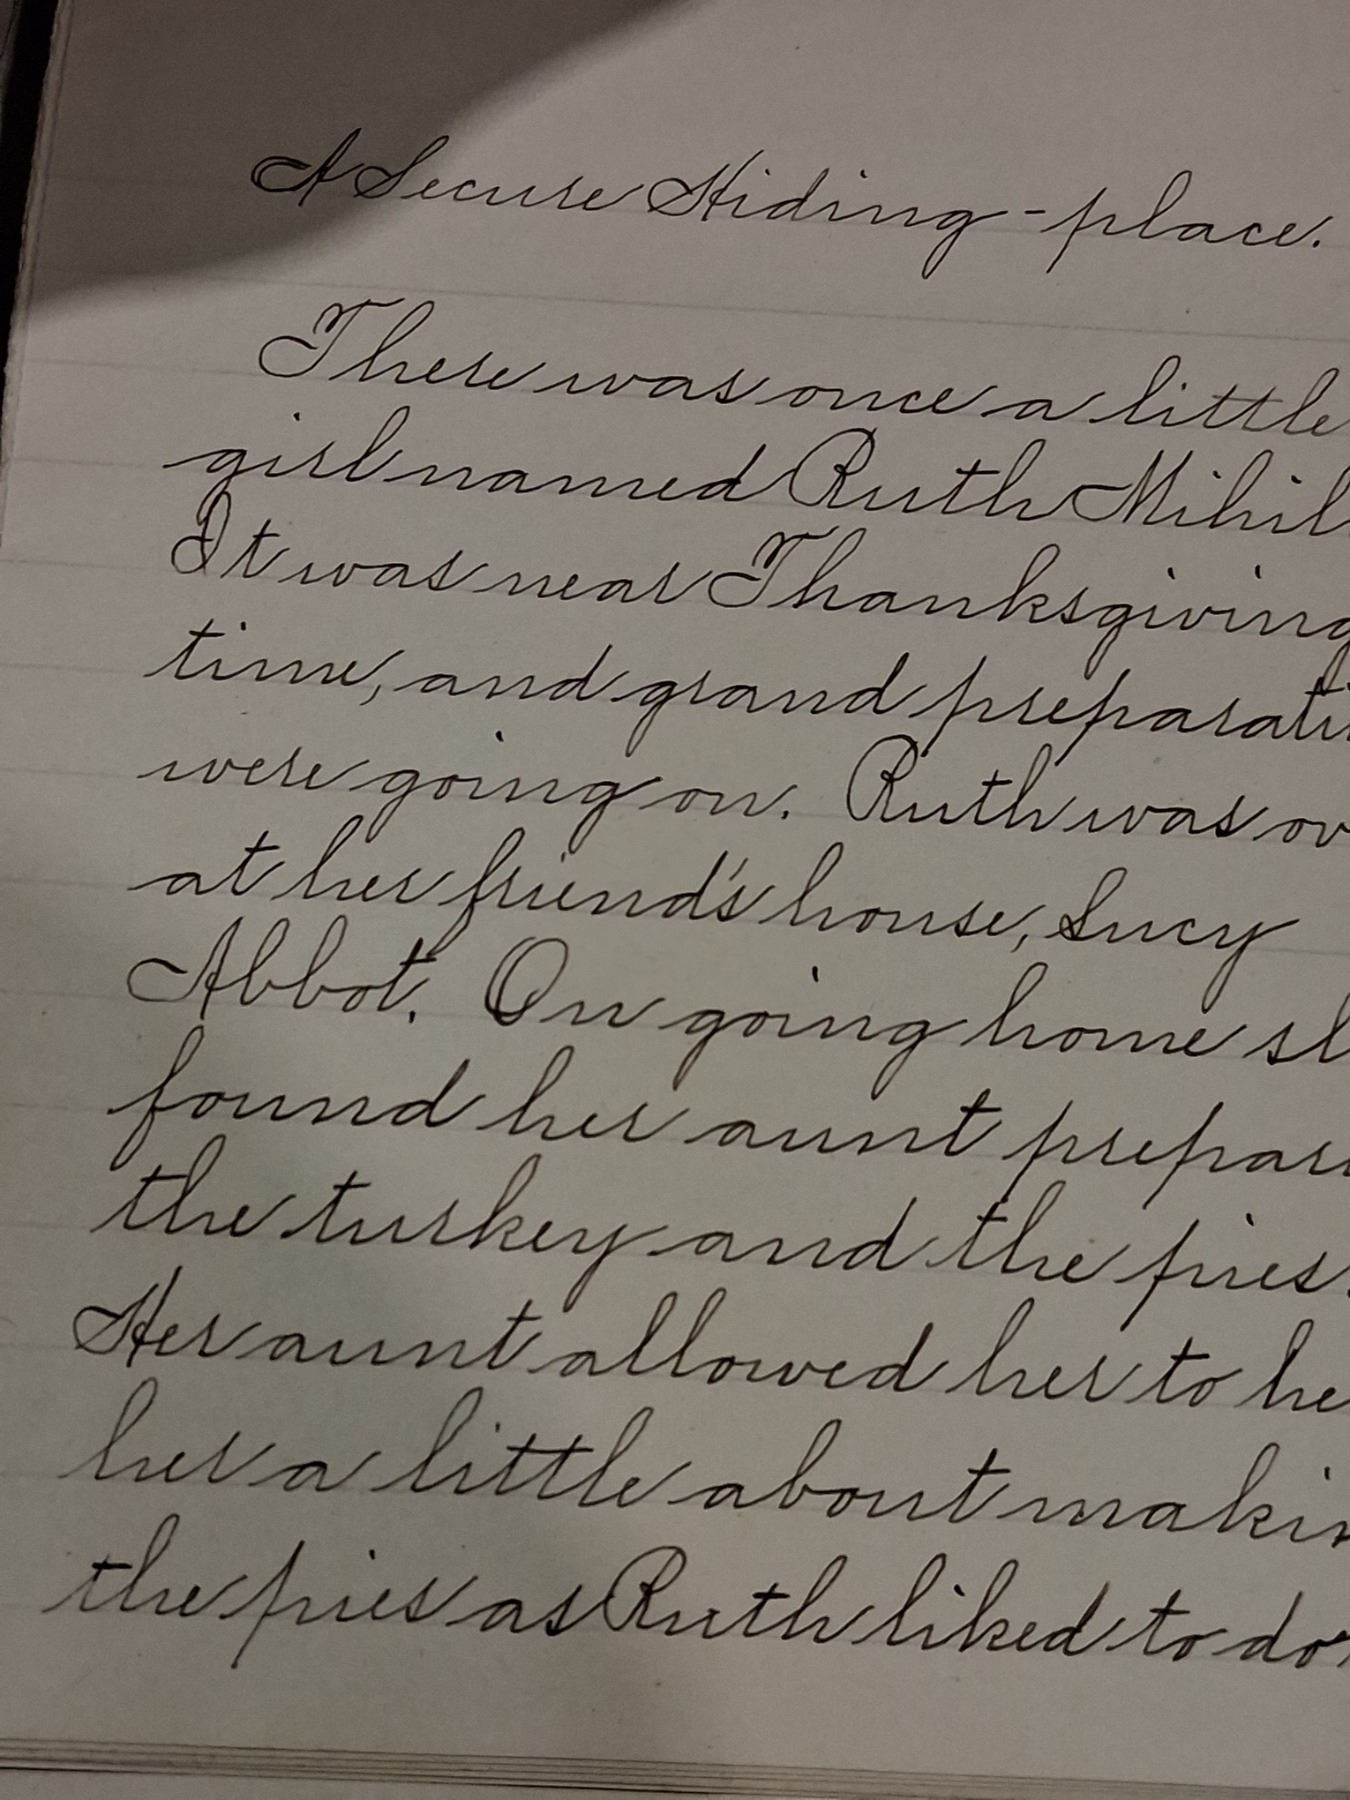 A Secure Hiding-place.
There was once a little
girl named Ruth
It was near Thanksgiving
time, and grand
were going on. Ruth was
at her friend's house, Lucy
Abbot. On going home
found her aunt
the turkey and the pies.
Her aunt allowed her to
her a little about
the pies as Ruth liked to do